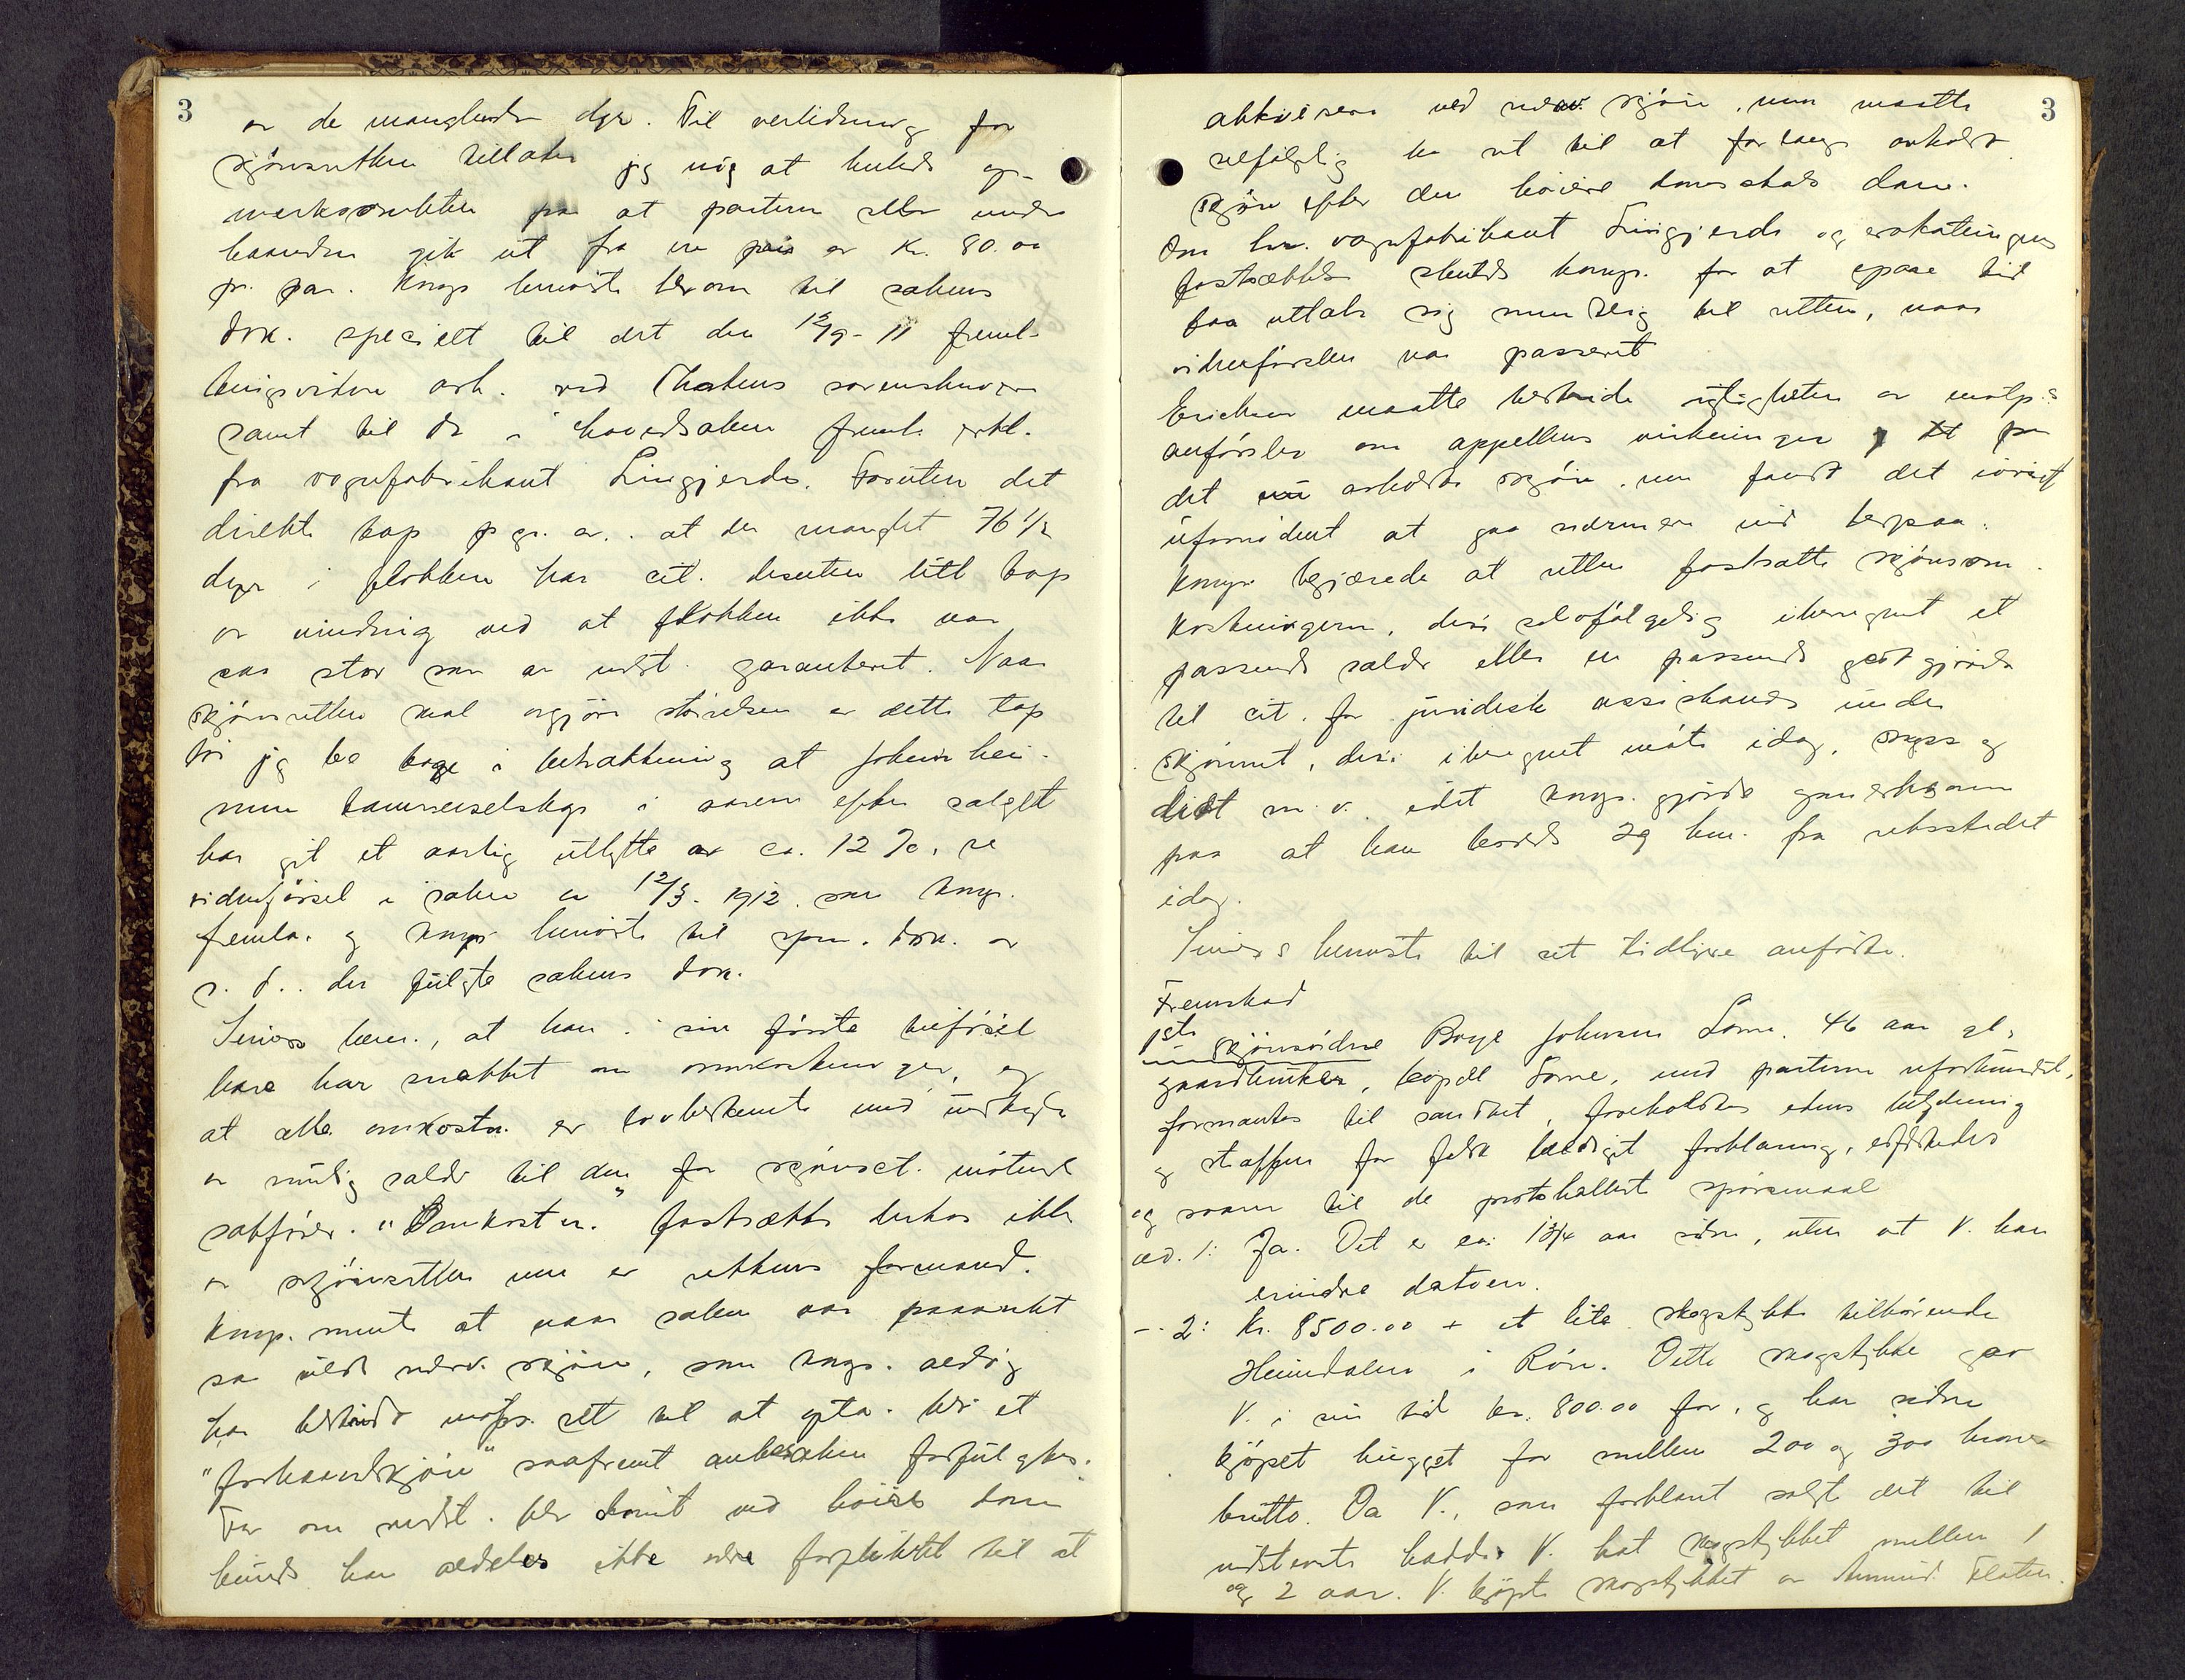 3
av de manglende dyr. Til veiledning for
skjønsretten tillater jeg mig at henlede op-
merksomheten paa at partene selv under
haanden gik ut fra en pris av kr. 80.00
pr. par. Komp. henviste dersom til sakens
dok. specielt til det den 12/9-11 freml.
tingsvidne avh. ved Thotens sorenskriveri
samt til de i hovedsaken freml. erkl.
fra vognfabrikant Lingjerde. Foruten det
direkte tap p gr. av. at der manglet 76 1/2
dyr i flokken har cit. desuten lidt tap
av vinding ved at flokken ikke var
saa stor som av indst. garanteret. Naar
skjønsretten skal avgjøre størrelsen av dette tap
vil jeg be tage i betraktning at Jotunhei-
mens tamrenselskap i aarene efter salget
har git et aarlig utbytte av ca. 12 %, se
vidneførsel i saken av 12/3. 1912. som komp.
fremla. og komp. henviste til spm. dok. av
s. d.. der fulgte sakens dok.
bem., at han i sin første tilførsel
bare har snakket om omkostninger, og
at alle omkostn. er lovbestemte med undtagelse
av mulig salær til den for skjønset. møtende
sakfører. "Omkostn." fastsættes derfor ikke
av skjønsretten men av rettens formand.
Komp. mente at naar saken var paaanket
saa vilde nærv. skjøn, som komp. aldrig
har bestridt motp. ret til at opta. bli et
"forhaandskjøn" saafremt ankesaken forfulgtes.
For om indst. blev dømt ved høiere dom
kunde han aldeles ikke være forpliktet til at
3
akkvisere ved nærv. skjøn, men maatte
selfølgelig ha ret til at forlange avholdt
skjøn efter den høiere domstols dom.
Om hr. vognfabrikant Lingjerde og erstatningens
fastsættelse skulde komp. for at spare tid
faa uttale sig mundtlig til retten, naar
vidneførslen var passeret
Erichsen maatte bestride rigtigheten av motp.s
anførsler om appellens virkninger paa
det nu avholdte skjøn. men fandt det iøvrigt
ufornødent at gaa nærmere ind derpaa.
Komp. begjærede at retten fastsatte skjønsom-
kostningerne, deri selvfølgelig iberegnet et
passende salær eller en passende godtgjørelse
til cit. for juridisk assistance under
skjønnet, deri iberegnet møte idag, skyss og
diæt m. v. idet komp. gjorde opmerksom
paa at han bodde 29 km. fra retsstedet
idag.
henviste til sit tidligere anførte.
Fremstod
1ste
skjønsvidne Boye Johnsen Lome. 46 aar gl.
gaardbruker, bopæl Lome, med parterne ubeslægtet,
formantes til sandhet, foreholdtes edens betydning
og straffen for falsk beediget forklaring, edfæstedes
og svarer til de protokollerte spørsmaal
ad. 1: Ja. Det er ca. 1 3/4 aar siden, uten at V. kan
erindre datoen.
-- 2: Kr. 8500.00 + et lite skogstykke tilhørende
Heimdalen i Røn. Dette skogstykke gav
V. i sin tid kr. 800.00 for, og har siden
kjøpet hugget for mellem 200 og 300 kroner
brutto. Da V., som forklart solgt det til
indstevnte hadde V. hat skogstykket mellem 1
og 2 aar. V. kjøpte skogstykket av Flaten.